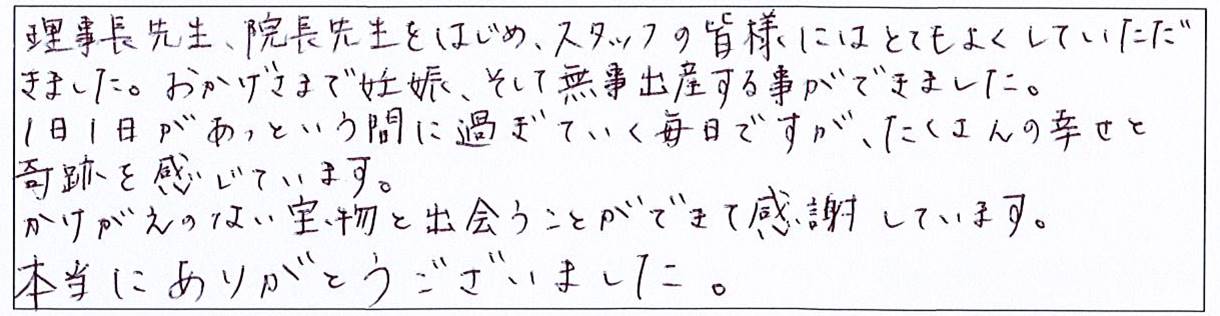 理事長先生、院長先生をはじめ、スタッフの皆様にはとてもよくしていただ
きました。おかげさまで妊娠、そして無事出産する事ができました。
1日1日があっという間に過ぎていく毎日ですが、たくさんの幸せと
奇跡を感じています。
かけがえのない宝物と出会うことができて感謝しています。
本当にありがとうございました。